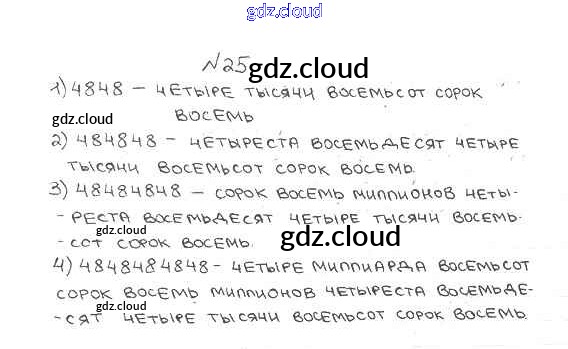 gdz.cloud
№25
gdz.cloud
1) 4848 – ЧЕТЫРЕ ТЫСЯЧИ ВОСЕМЬСОТ СОРОК
ВОСЕМЬ
gdz.cloud
2) 484848 – ЧЕТЫРЕСТА ВОСЕМЬДЕСЯТ ЧЕТЫРЕ
ТЫСЯЧИ ВОСЕМЬСОТ СОРОК ВОСЕМЬ.
3) 48484848 – СОРОК ВОСЕМЬ МИЛЛИОНОВ ЧЕТЫ-
-РЕСТА ВОСЕМЬДЕСЯТ ЧЕТЫРЕ ТЫСЯЧИ ВОСЕМЬ-
-СОТ СОРОК ВОСЕМЬ.
gdz.cloud
4) 4848484848 – ЧЕТЫРЕ МИЛЛИАРДА ВОСЕМЬСОТ
СОРОК ВОСЕМЬ МИЛЛИОНОВ ЧЕТЫРЕСТА ВОСЕМЬДЕ-
gdz.cloud
gdz.cloud
-СЯТ ЧЕТЫРЕ ТЫСЯЧИ ВОСЕМЬСОТ СОРОК ВОСЕМЬ.